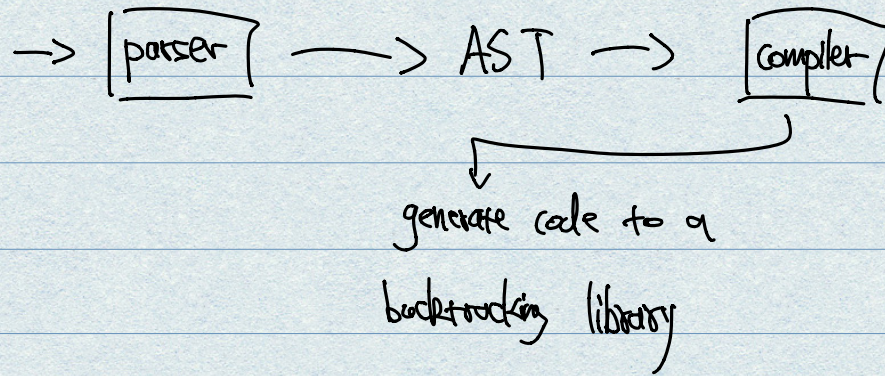 parser AST compiler
generate code to a
backtracking library